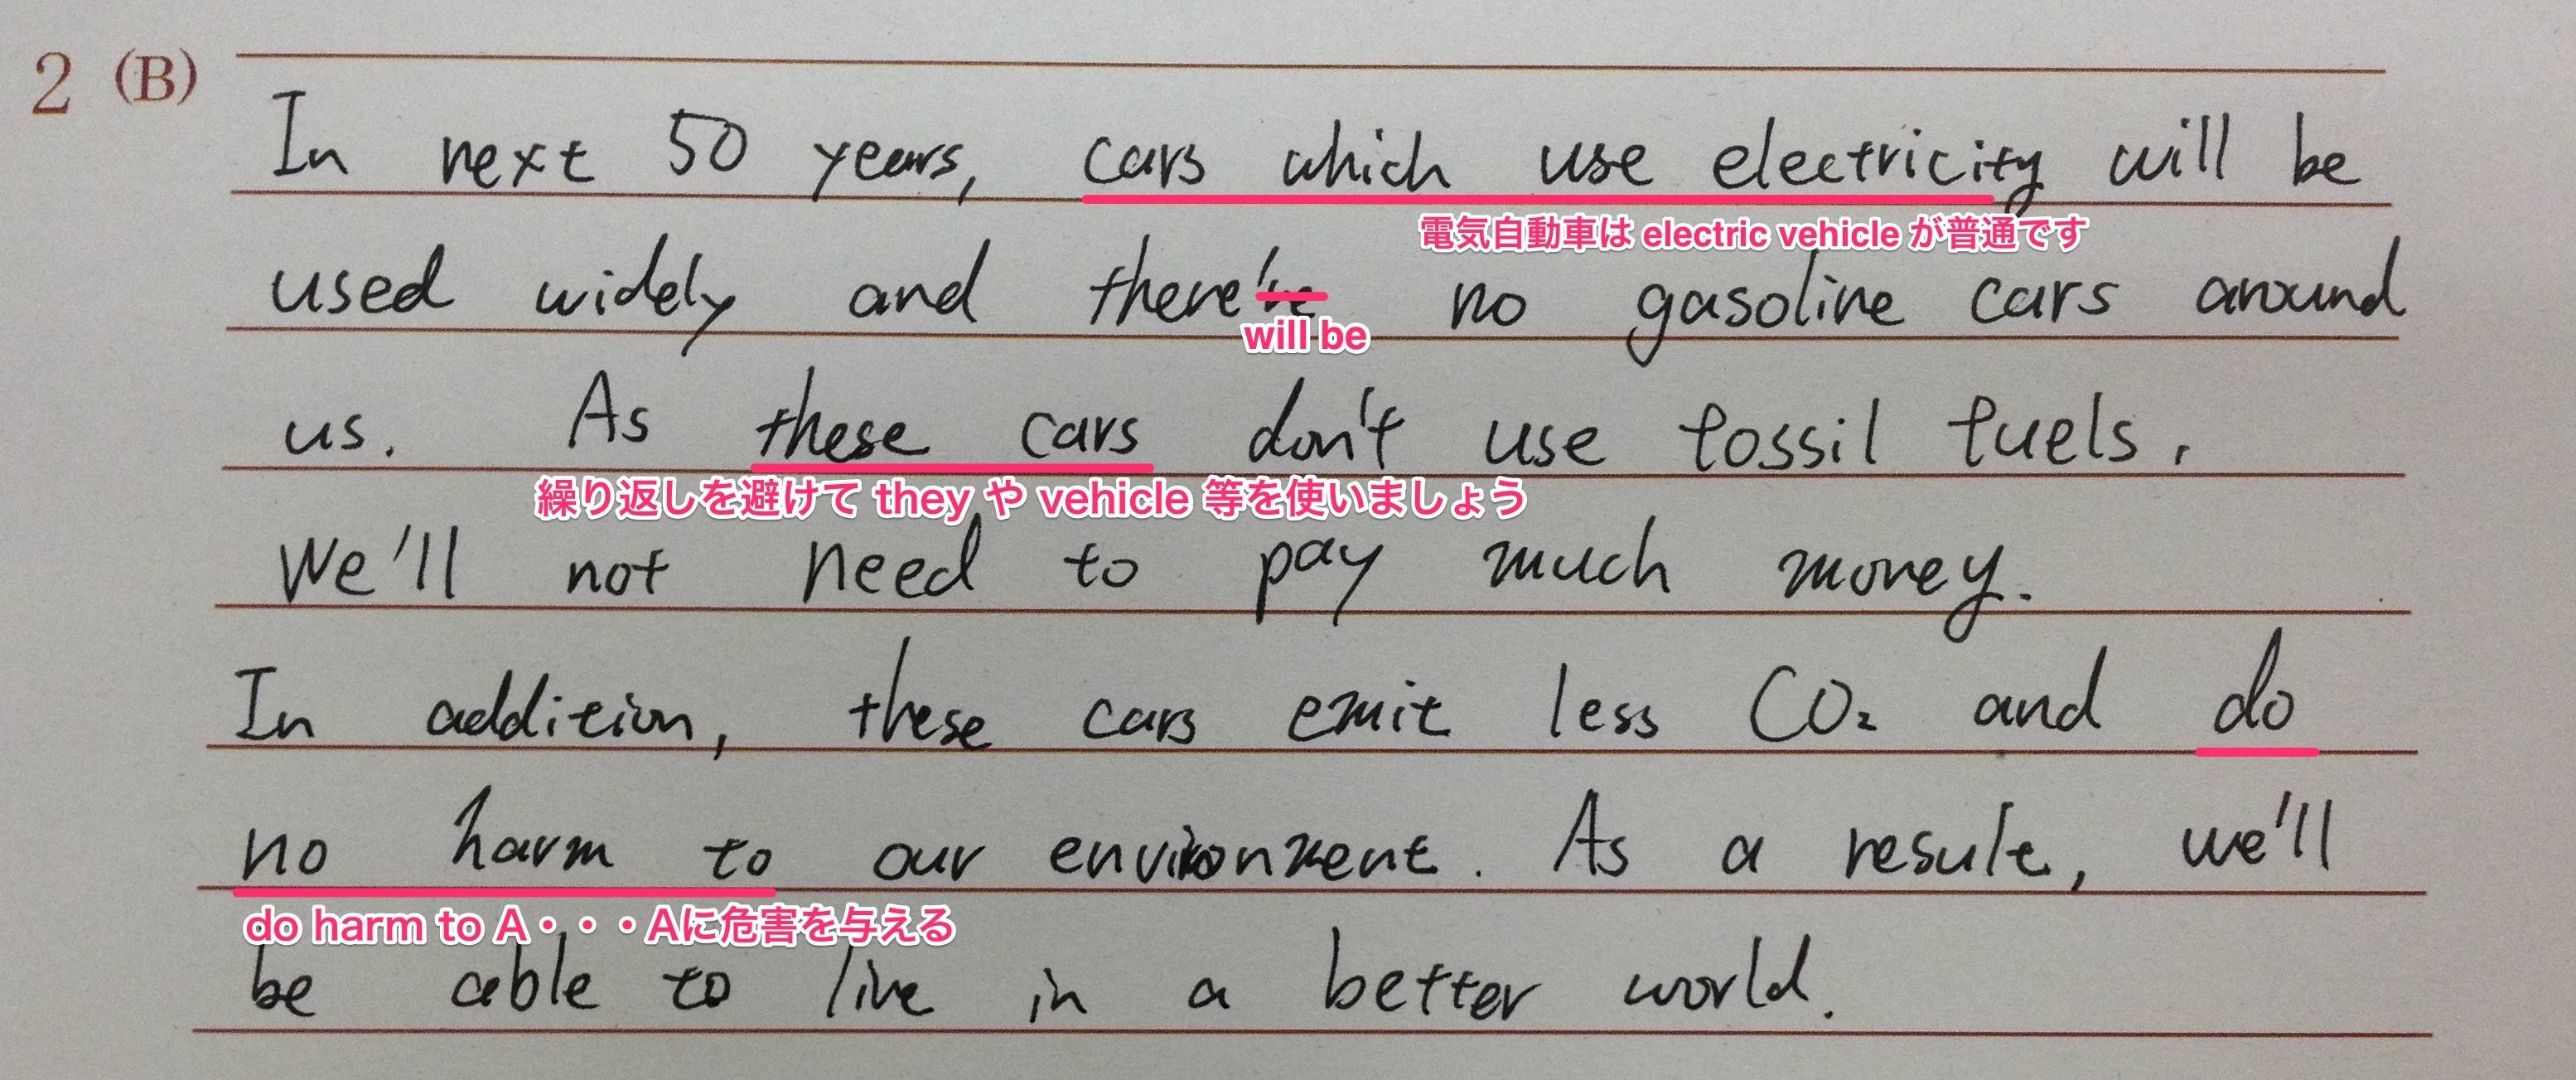 2 (B)
In next 50 years, cars which use electricity will be
電気自動車は electric vehicle が普通です
used widely and there're no gasoline cars around
will be
us. As these cars don't use fossil fuels,
繰り返しを避けて they や vehicle 等を使いましょう
We'll not need to pay much money.
In addition, these cars emit less CO₂ and do
no harm to our environment. As a result, we'll
do harm to A・・・Aに危害を与える
be able to live in a better world.